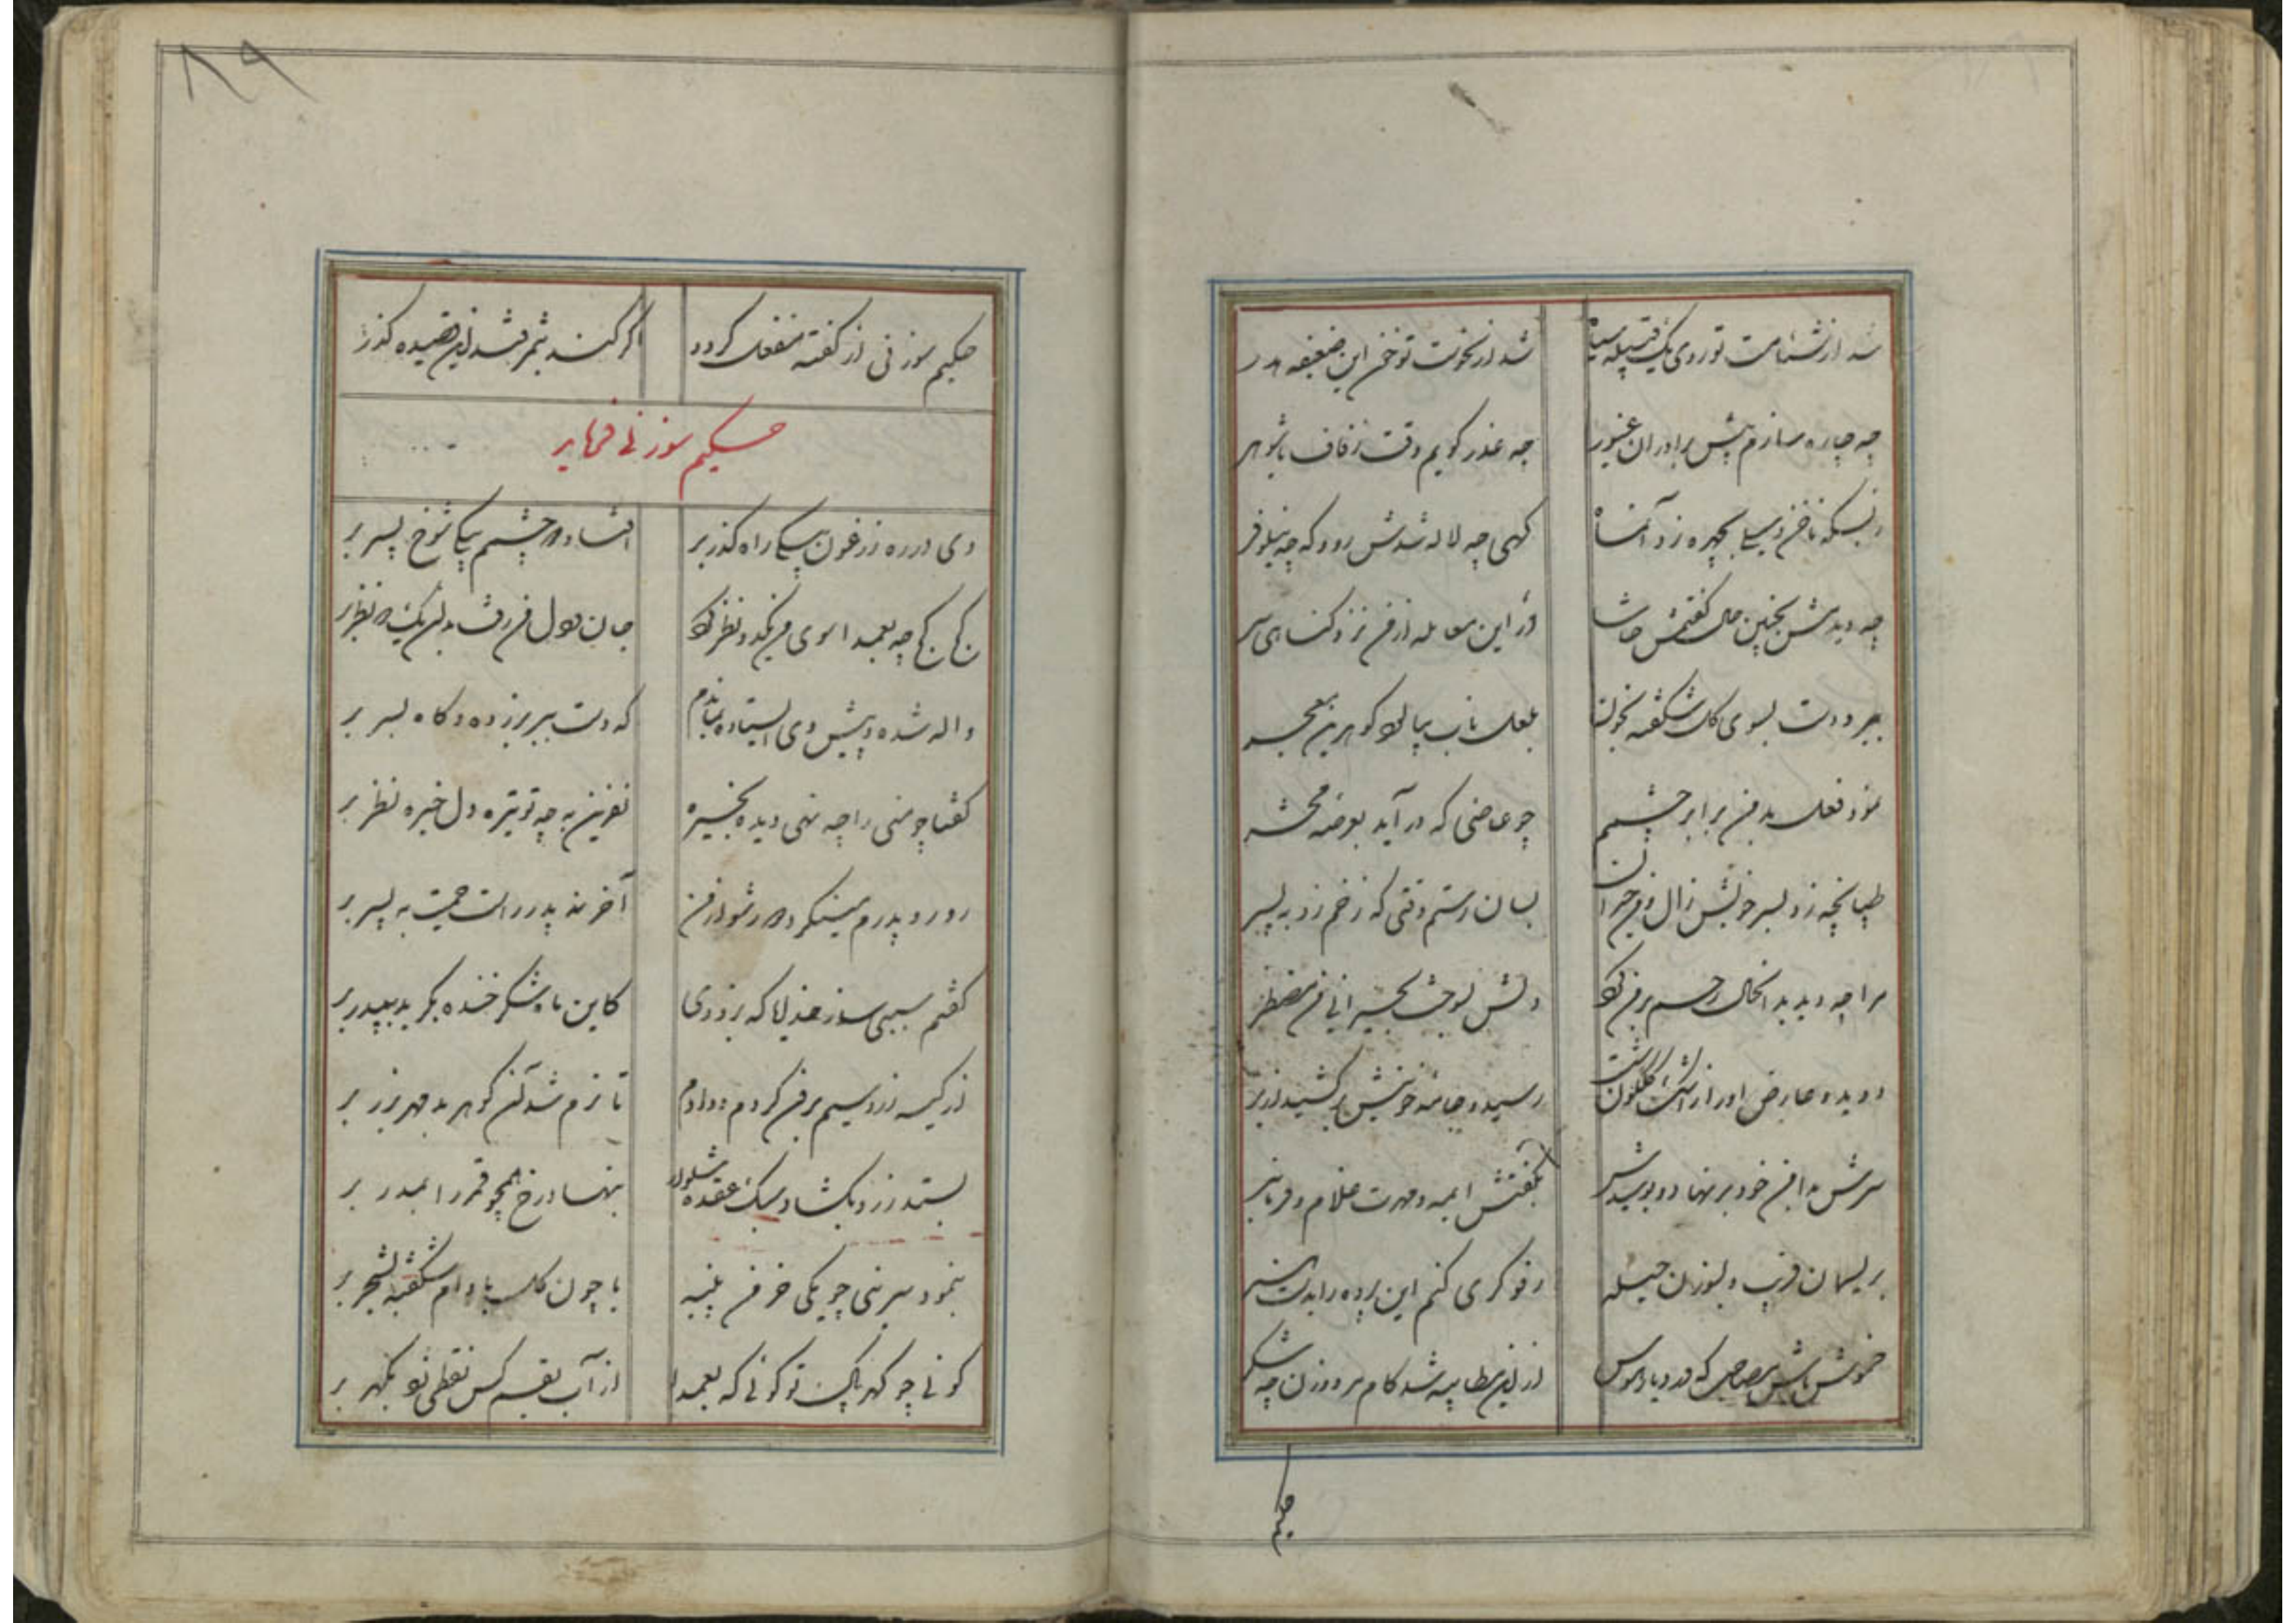 شد از شئامت تو روی یک قبیله سیاه شد از نخوست تو خون این ضعیفه هدر
چه چاره سازم پیش برادران غیور چه عذر گویم وقت زفاف با شوهر
ز بسکه ناخن و سیلی بچهره زد آنماه گهی چه لاله شدش رو و که چه نیلوفر
چه دیدمش بچنین حال گفتمش حاشا در این معامله از من نزد گناهی سر
ببر دو دست بسوی گل شکفته بخون بلعل ناب بیالود گوهرین معجر
نمود فعل بد من برابر چشمم چو عاصی که در آید بعرصه محشر
طپانچه زد بسر خویش زال و من حیران بسان رستم وقتی که زخم زد به پسر
مرا چه دید بدانحال رحم بر من کرد دلش بسوخت بحیرانی من مضطر
دویده عارض او را ز اشک گلگون شست رسید و جامه خونینش برکشید از بر
سرش بدامن خود بر نهاد و بوسیدش بگفتش ایمه و مهرت غلام و فرمانبر
بریسمان فریب و بسوزن حیله رفوگری کنم این پرده را بدست هنر
خموش باش مصاحب که درد یا
از این مطایبه شد کام مرد و زن چه شکر
حکیم
۸۹
حکیم سوزنی از گفته منفعل گردد اگر کند بثمرقند این قصیده گذر
حکیم سوزنی فرماید
دی در ره زرغون بیکی راه گذر بر افتاد مرا چشم بیکی شوخ پسر بر
کج کج چه بعمدا سوی من کرد و نظر کرد جان و دل من رفت بدان یک دو نظر بر
واله شده در پیش وی استاده بماندم که دست ببر بر زده و گاه بسر بر
گفتا چو منی را چه نهی دیده بخیره نفرین به چه تو تیره دل خیره نظر بر
رو رو پدرم مینگرد دور شو از من آخر نه پدر راست حمیت به پسر بر
گفتم سببی ساز خدایا که بزودی کاین ماه شکر خنده بگرید بپدر بر
از کیسه زر و سیم برون کردم و دادم تا نرم شد آن گوهر بد مهر بزر بر
بستد زر و بگشاد سبک عقده شلوار بنهاد رخ همچو قمر را بمدر بر
بنمود سرینی چو یکی خرمن پنبه یا چون گل بادام شکفته بشجر بر
گونی چو گهر پاک تو گوئی که بعمدا از آب بقم کس نقطی زد بگهر بر